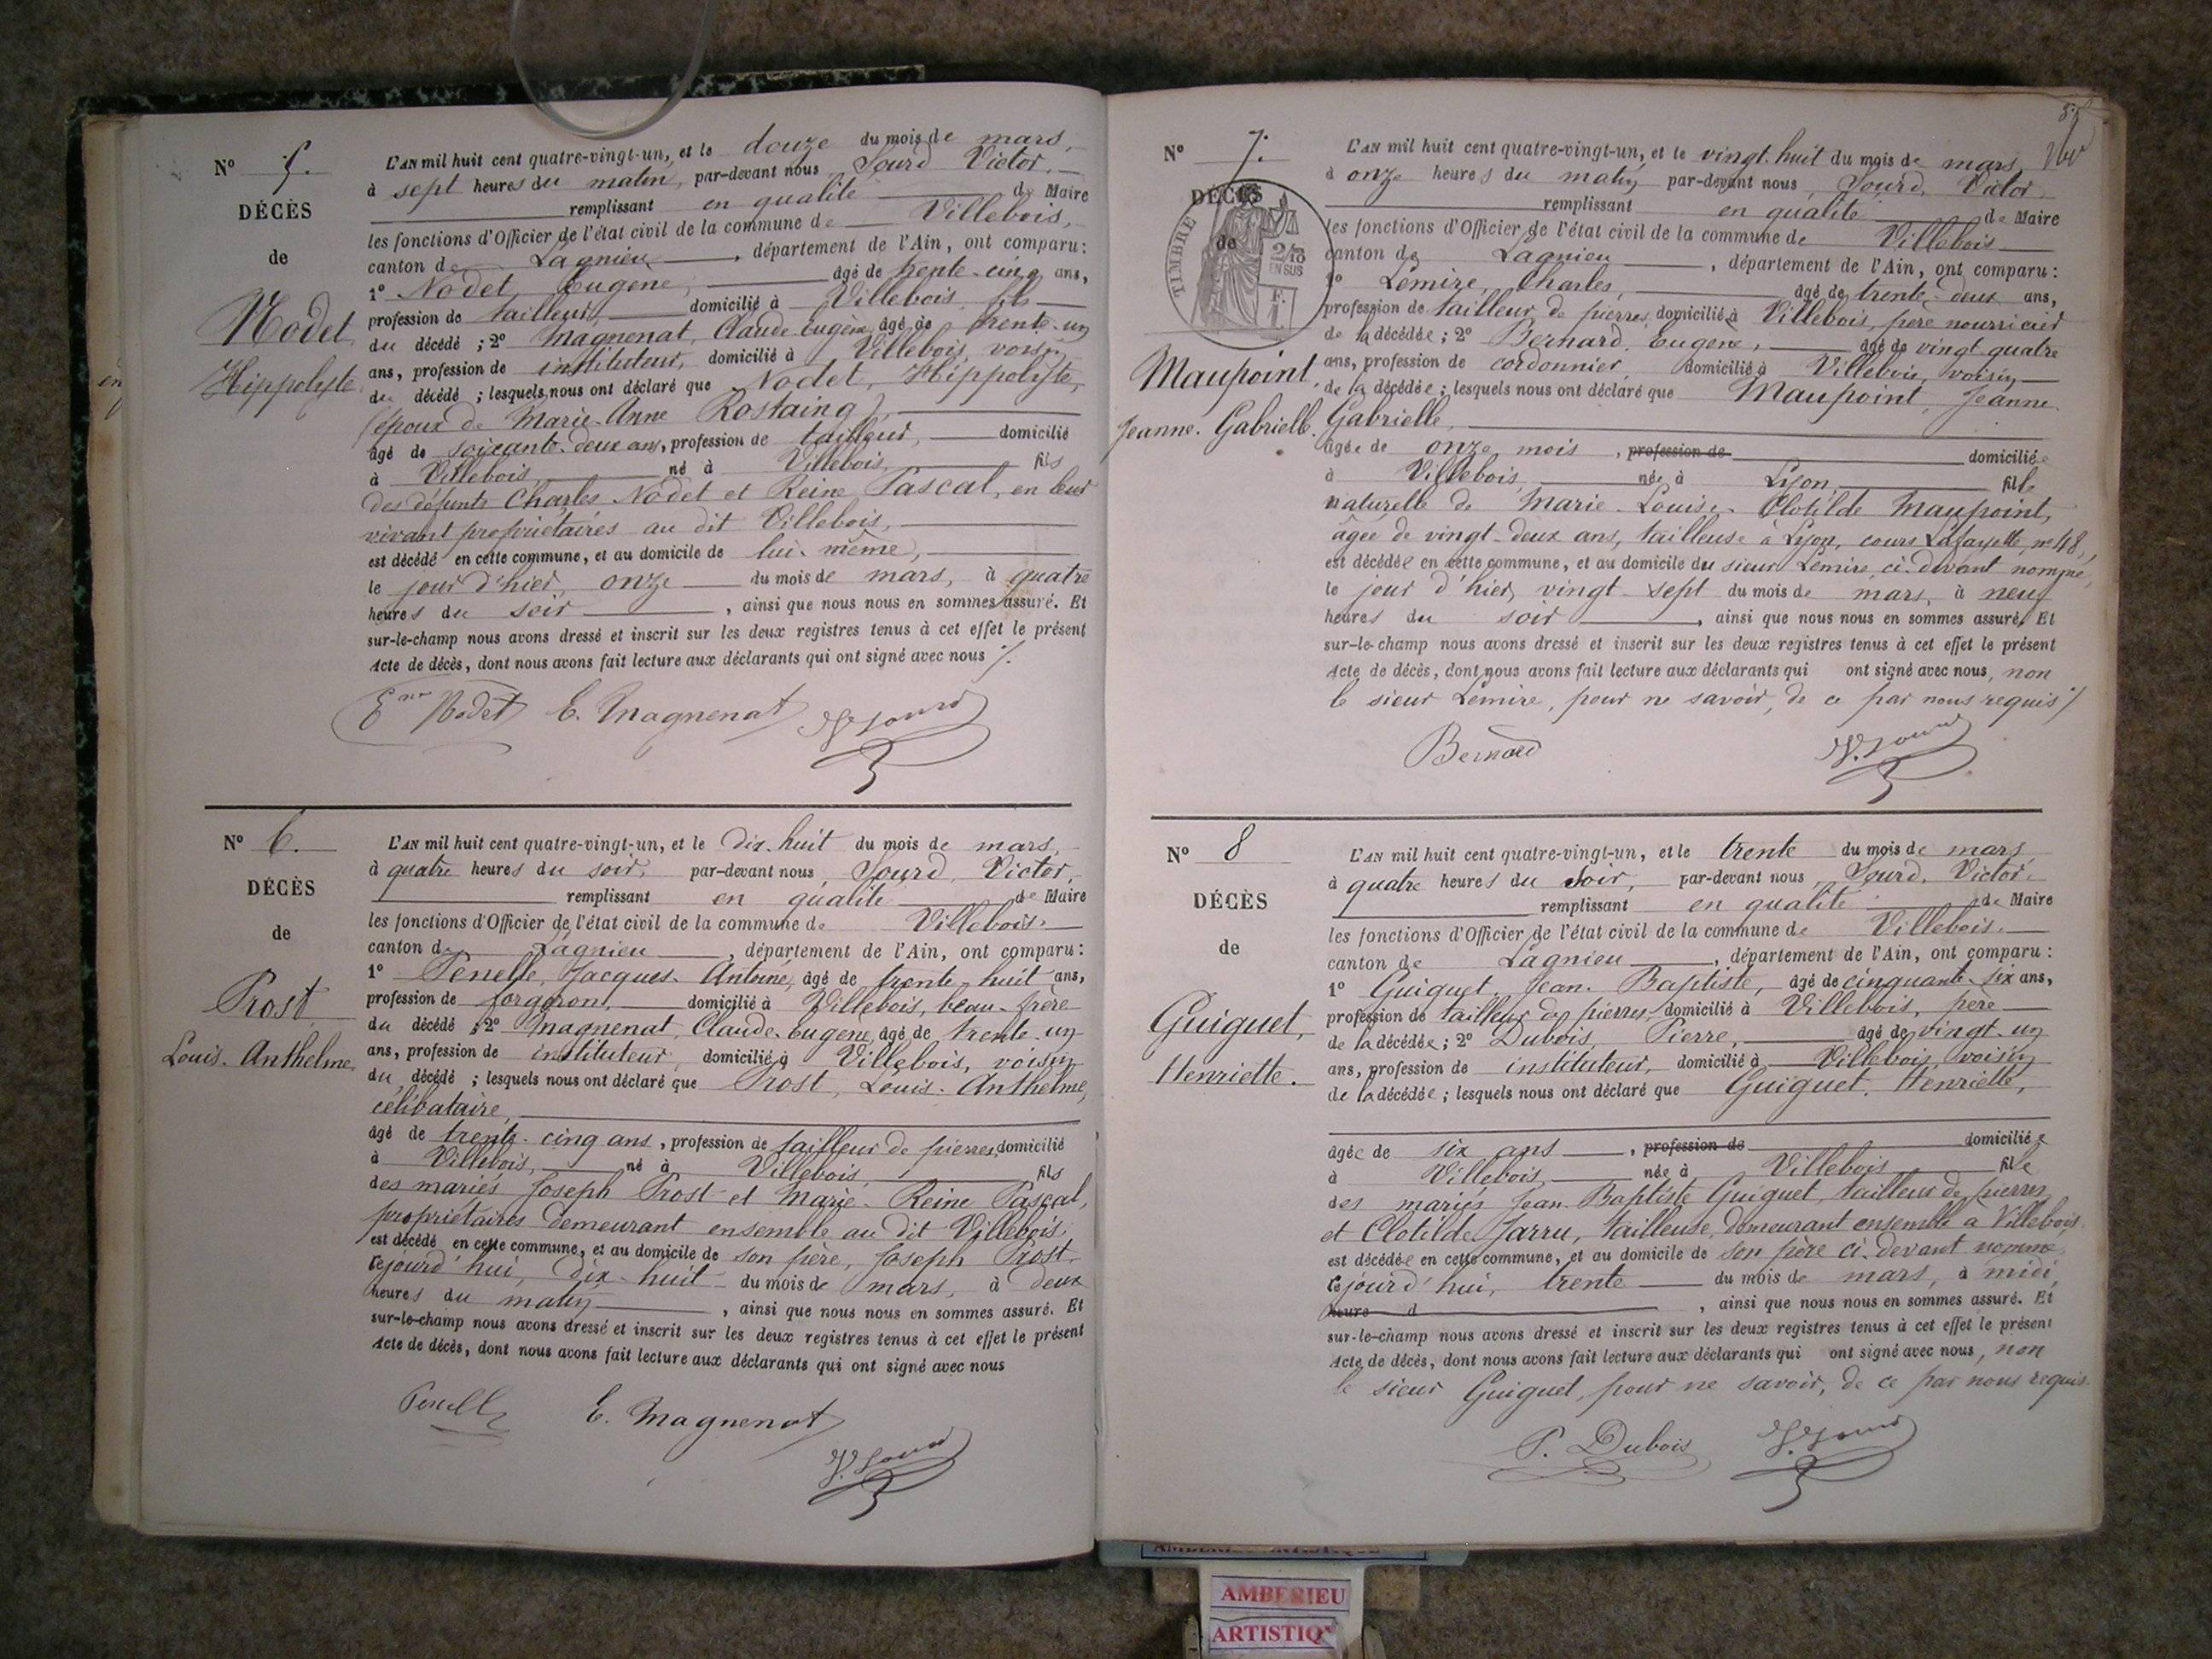 N° 5.
DÉCÈS
de
Nodet
Hippolyte
L'AN mil huit cent quatre-vingt-un, et le douze du mois de mars,
à sept heures du matin, par-devant nous Sourd Victor,
remplissant en qualité de Maire
les fonctions d'Officier de l'état civil de la commune de Villebois,
canton de Lagnieu, département de l'Ain, ont comparu:
1° Nodet, Eugène, âgé de trente-cinq ans,
profession de tailleur, domicilié à Villebois, fils
du décédé; 2° Magnenat, Claude-Eugène, âgé de trente-un
ans, profession de instituteur, domicilié à Villebois, voisin
du décédé; lesquels nous ont déclaré que Nodet, Hippolyte,
(époux de Marie-Anne Rostaing),
âgé de soixante-deux ans, profession de tailleur, domicilié
à Villebois, né à Villebois, fils
des défunts Charles Nodet et Reine Pascal, en leur
vivant propriétaires au dit Villebois,
est décédé en cette commune, et au domicile de lui-même,
le jour d'hier, onze du mois de mars, à quatre
heures du soir, ainsi que nous nous en sommes assuré. Et
sur-le-champ nous avons dressé et inscrit sur les deux registres tenus à cet effet le présent
Acte de décès, dont nous avons fait lecture aux déclarants qui ont signé avec nous
Nodet E. Magnenat V. Sourd
N° 6.
DÉCÈS
de
Prost
Louis-Anthelme
L'AN mil huit cent quatre-vingt-un, et le dix-huit du mois de mars,
à quatre heures du soir, par-devant nous, Sourd, Victor,
remplissant en qualité de Maire
les fonctions d'Officier de l'état civil de la commune de Villebois,
canton de Lagnieu, département de l'Ain, ont comparu:
1° Penelle, Jacques-Antoine, âgé de trente-huit ans,
profession de forgeron, domicilié à Villebois, beau-frère
du décédé; 2° Magnenat, Claude-Eugène, âgé de trente-un
ans, profession de instituteur, domicilié à Villebois, voisin
du décédé; lesquels nous ont déclaré que Prost, Louis-Anthelme,
célibataire,
âgé de trente-cinq ans, profession de tailleur de pierres, domicilié
à Villebois, né à Villebois, fils
des mariés Joseph Prost et Marie-Reine Pascal,
propriétaires demeurant ensemble au dit Villebois,
est décédé en cette commune, et au domicile de son père, Joseph Prost
cejourd'hui, dix-huit du mois de mars, à deux
heures du matin, ainsi que nous nous en sommes assuré. Et
sur-le-champ nous avons dressé et inscrit sur les deux registres tenus à cet effet le présent
Acte de décès, dont nous avons fait lecture aux déclarants qui ont signé avec nous
Penelle E. Magnenat
V. Sourd
N° 7.
DÉCÈS
de
TIMBRE
2/10
EN SUS
F.
1.
Maupoint,
Jeanne-Gabrielle.
L'AN mil huit cent quatre-vingt-un, et le vingt-huit du mois de mars,
à onze heures du matin par-devant nous, Sourd, Victor,
remplissant en qualité de Maire
les fonctions d'Officier de l'état civil de la commune de Villebois
canton de Lagnieu, département de l'Ain, ont comparu:
1° Lémire, Charles, âgé de trente-deux ans,
profession de tailleur de pierres, domicilié à Villebois, père nourricier
de la décédée; 2° Bernard, Eugène, âgé de vingt-quatre
ans, profession de cordonnier, domicilié à Villebois, voisin
de la décédée; lesquels nous ont déclaré que Maupoint, Jeanne-
Gabrielle,
âgée de onze mois, profession de domiciliée
à Villebois, née à Lyon, fille
naturelle de Marie-Louise-Clotilde Maupoint,
âgée de vingt-deux ans, tailleuse à Lyon, cours Lafayette, n° 48,
est décédée en cette commune, et au domicile du sieur Lémire, ci-devant nommé,
le jour d'hier, vingt-sept du mois de mars, à neuf
heures du soir, ainsi que nous nous en sommes assuré. Et
sur-le-champ nous avons dressé et inscrit sur les deux registres tenus à cet effet le présent
Acte de décès, dont nous avons fait lecture aux déclarants qui ont signé avec nous, non
le sieur Lémire, pour ne savoir, de ce par nous requis
Bernard V. Sourd
N° 8
DÉCÈS
de
Guiguet,
Henriette.
L'AN mil huit cent quatre-vingt-un, et le trente du mois de mars
à quatre heures du soir, par-devant nous, Sourd, Victor,
remplissant en qualité de Maire
les fonctions d'Officier de l'état civil de la commune de Villebois
canton de Lagnieu, département de l'Ain, ont comparu:
1° Guiguet, Jean-Baptiste, âgé de cinquante-six ans,
profession de tailleur de pierres, domicilié à Villebois, père
de la décédée; 2° Dubois, Pierre, âgé de vingt-un
ans, profession de instituteur, domicilié à Villebois, voisin
de la décédée; lesquels nous ont déclaré que Guiguet, Henriette,
âgée de six ans, profession de domiciliée
à Villebois, née à Villebois, fille
des mariés Jean-Baptiste Guiguet, tailleur de pierres
et Clotilde Jarru, tailleuse, demeurant ensemble à Villebois
est décédée en cette commune, et au domicile de son père ci-devant nommé
cejourd'hui, trente du mois de mars, à midi,
heure d, ainsi que nous nous en sommes assuré. Et
sur-le-champ nous avons dressé et inscrit sur les deux registres tenus à cet effet le présent
Acte de décès, dont nous avons fait lecture aux déclarants qui ont signé avec nous, non
le sieur Guiguet, pour ne savoir, de ce par nous requis.
P. Dubois V. Sourd
AMBERIEU
ARTISTIQ